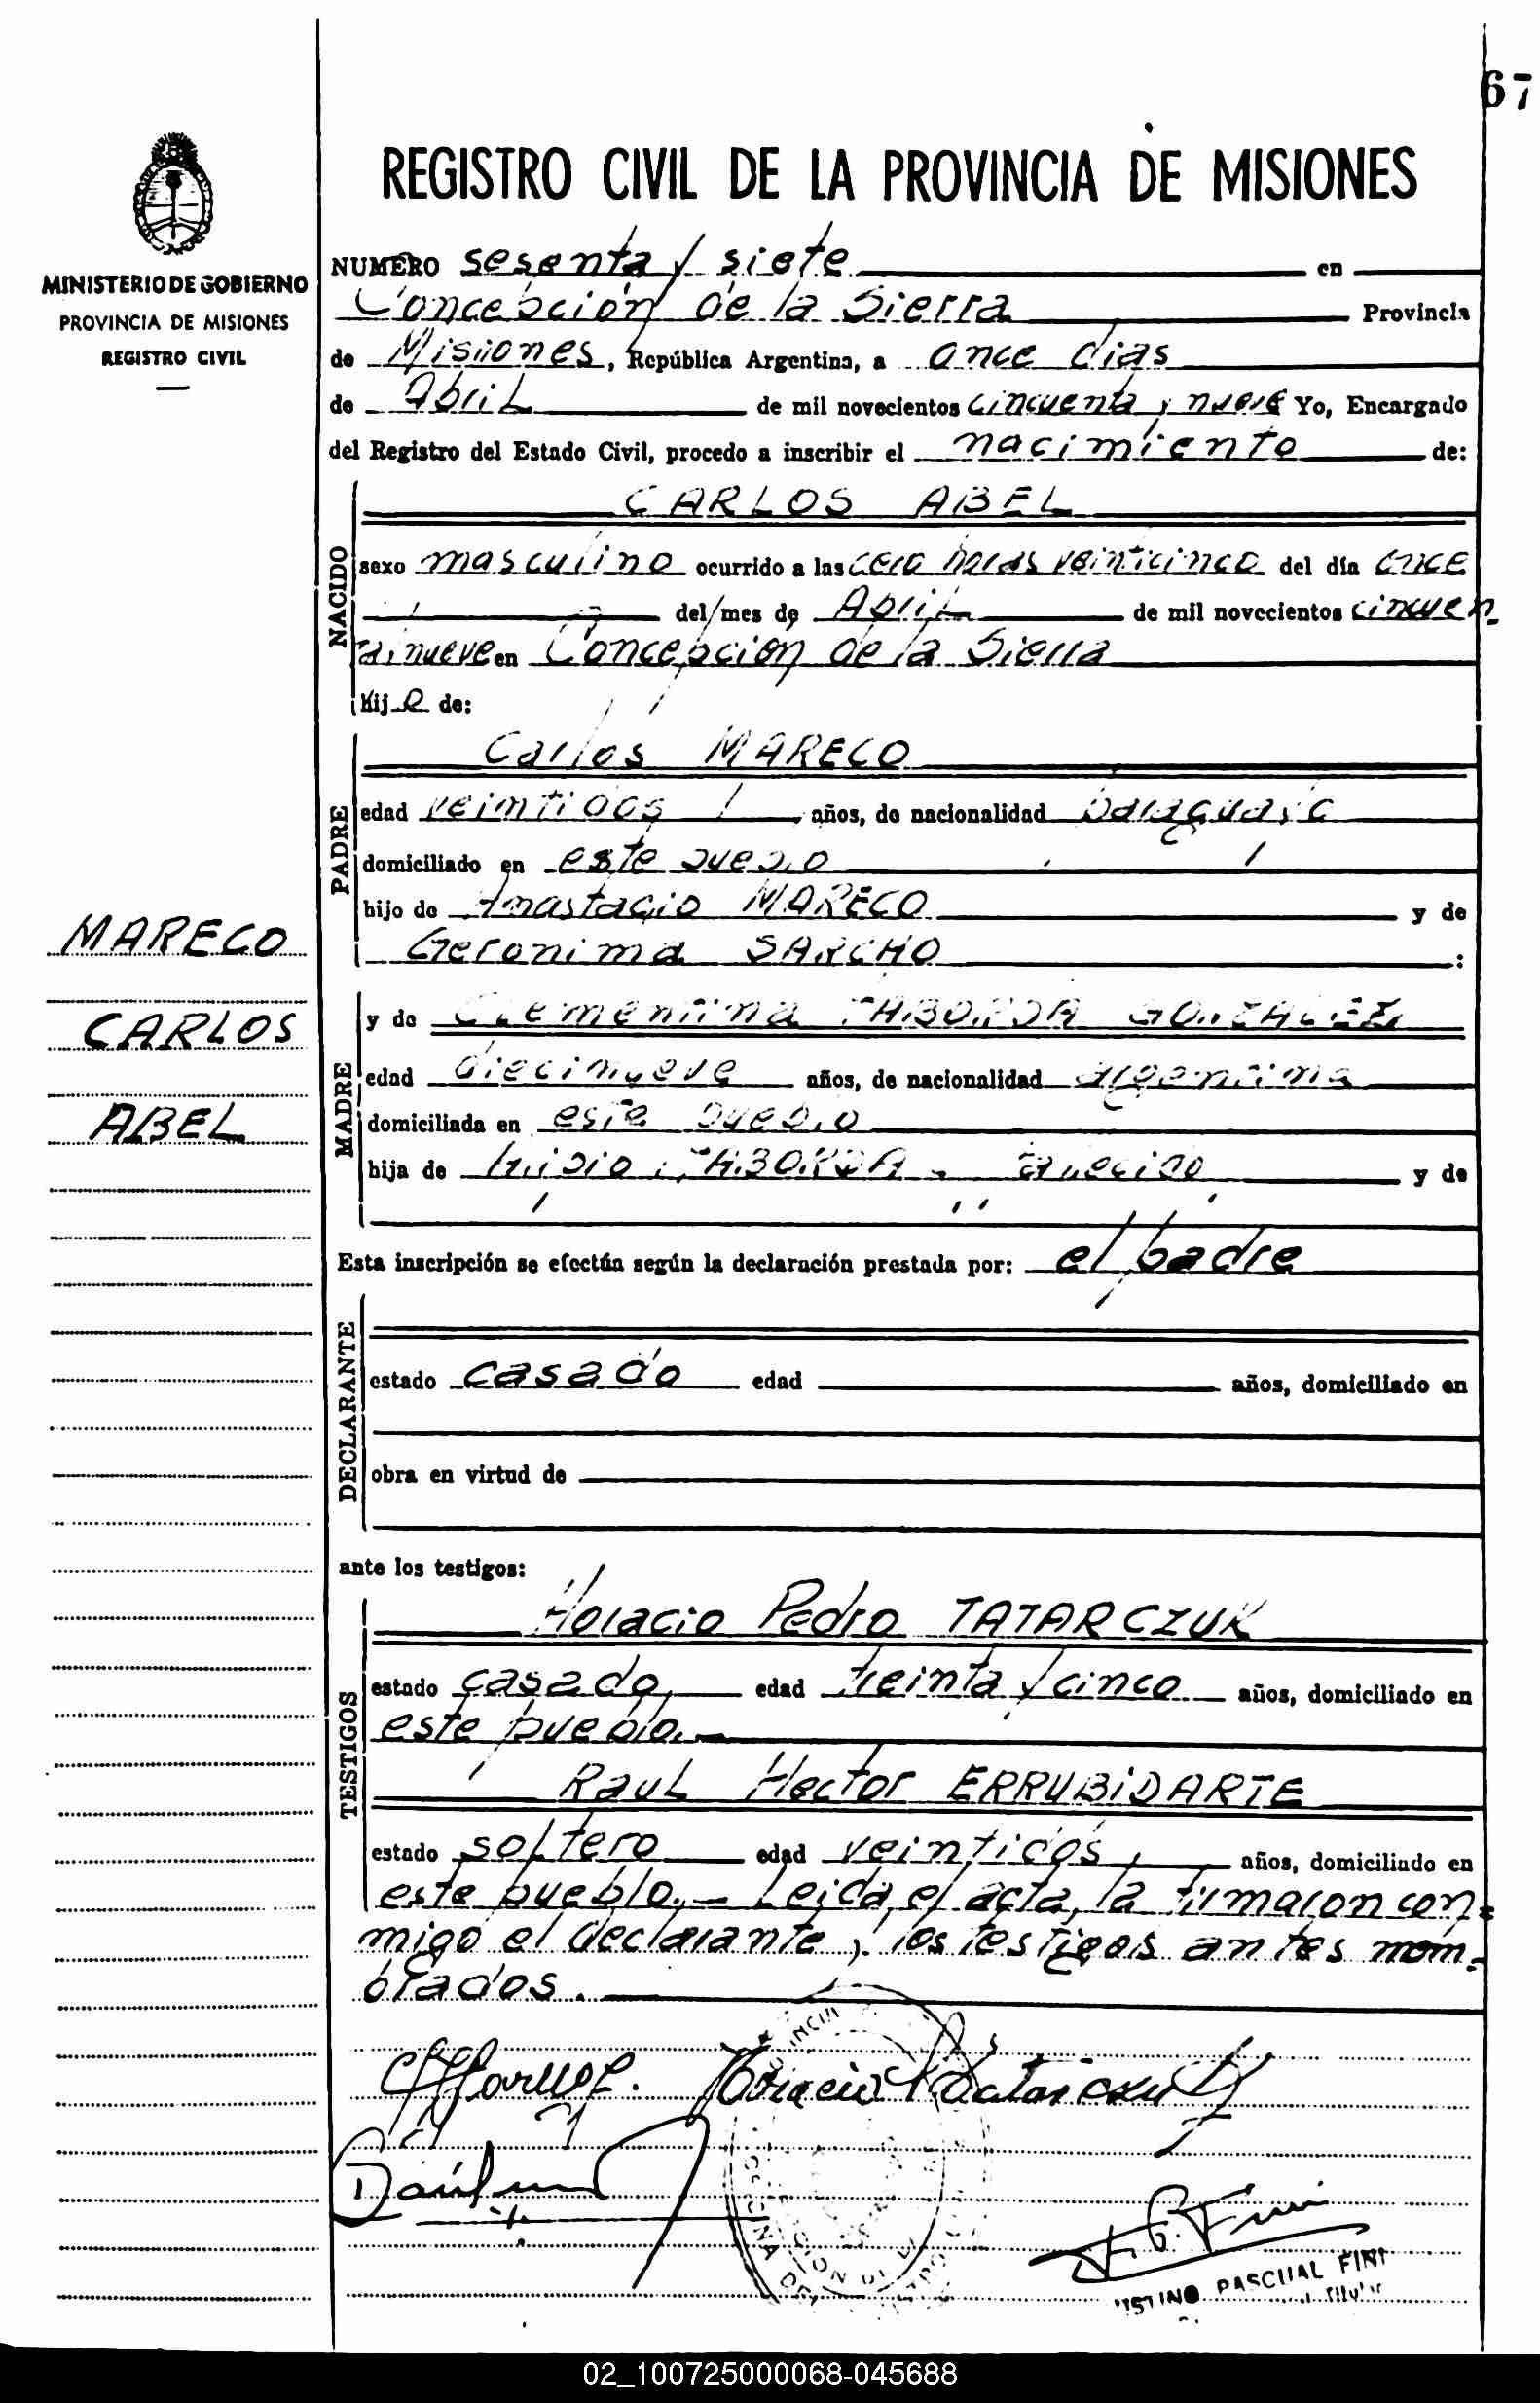 67
REGISTRO CIVIL DE LA PROVINCIA DE MISIONES
MINISTERIO DE GOBIERNO
PROVINCIA DE MISIONES
REGISTRO CIVIL
NUMERO sesenta y siete en
Concepción de la Sierra Provincia
de Misiones, República Argentina, a once dias
de Abril de mil novecientos cincuenta y nueve Yo, Encargado
del Registro del Estado Civil, procedo a inscribir el nacimiento de:
NACIDO
CARLOS ABEL
sexo masculino ocurrido a las cero horas veinticinco del día once
del mes de Abril de mil novecientos cincuen
ta y nueve en Concepción de la Sierra
Hijo de:
PADRE
Carlos MARECO
edad veintidos años, de nacionalidad paraguaya
domiciliado en este pueblo
hijo de Anastacio MARECO y de
Geronima SARCHO :
MADRE
y de Clementina TABORDA GONZALEZ
edad diecinueve años, de nacionalidad argentina
domiciliada en este pueblo
hija de TABORDA - fallecido y de
MARECO
CARLOS
ABEL
Esta inscripción se efectúa según la declaración prestada por: el padre
DECLARANTE
estado casado edad años, domiciliado en
obra en virtud de
ante los testigos:
TESTIGOS
Horacio Pedro TATARCZUK
estado casado, edad treinta y cinco años, domiciliado en
este pueblo.-
Raul Hector ERRUBIDARTE
estado soltero edad veintidós, años, domiciliado en
este pueblo.- Leida el acta, la firmaron con-
migo el declarante y los testigos antes nom-
brados.
PASCUAL FINI
02_100725000068-045688